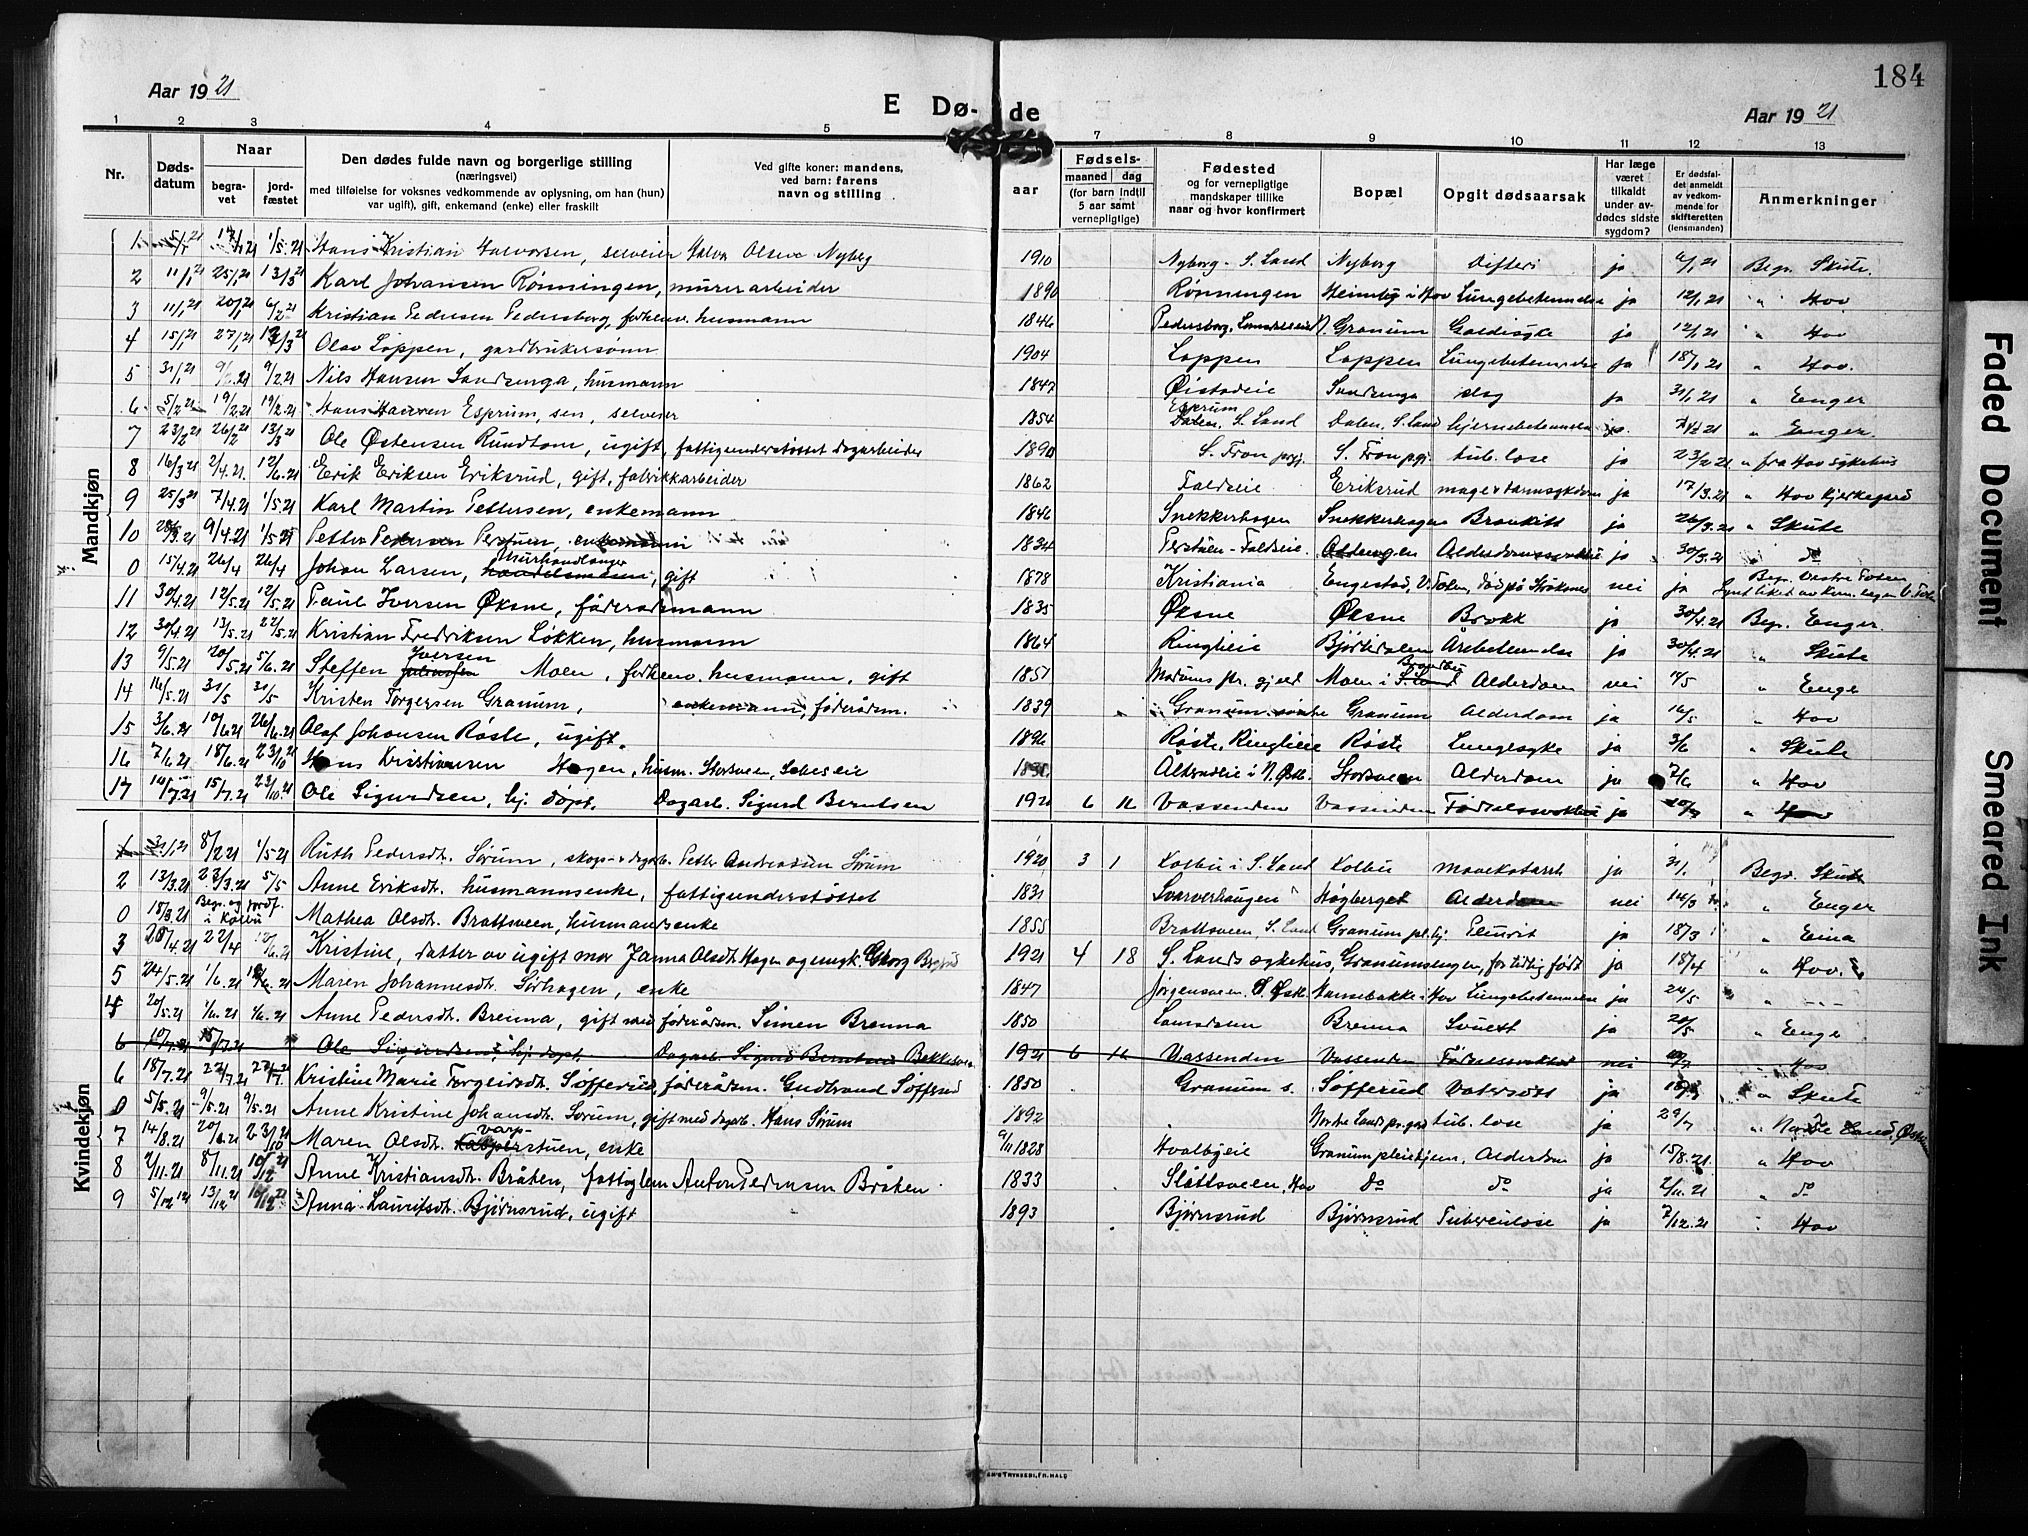 184
Aar 1921
E Dø- de
Aar 1921
1 2 3 4 5 7 8 9 10 11 12 13
Nr.
Døds-
datum
Naar
begra-
vet
jord-
fæstet
Den dødes fulde navn og borgerlige stilling
(næringsvei)
med tilføielse for voksnes vedkommende av oplysning, om han (hun)
var ugift), gift, enkemand (enke) eller fraskilt
Ved gifte koner: mandens,
ved barn: farens
navn og stilling
aar
Fødsels-
maaned dag
(for barn indtil
5 aar samt
vernepligtige)
Fødested
og for vernepligtige
mandskaper tillike
naar og hvor konfirmert
Bopæl
Opgit dødsaarsak
Har læge
været
tilkaldt
under av-
dødes sidste
sygdom?
Er dødsfal-
det anmeldt
av vedkom-
mende for
skifteretten
(lensmanden)
Anmerkninger
Mandkjøn
1 5/1 21 17/1 21 1/5.21 Hans Kristian Halvorsen, selveier Halvor Olsen Nyberg 1910 Nyborg - S. Land Nyborg Difteri ja 6/1 21 Begr. Skute.
2 11/1 21 25/1 21 13/3 21 Karl Johansen Rønningen, murerarbeider 1890 Rønningen Heimlig i Hov Lungebetennelse ja 12/1.21 " " Hov
3 11/1 21 20/1 21 6/2 21 Kristian Pedersen Pedersborg, forhenv. husmann 1846 Pedersborg, Landåseeid N. Granum Galdesyke ja 12/1.21 " Hov
4 15/1 21 27/1 21 13/3 21 Olav Loppen, gardbrukersønn 1904 Loppen Loppen Lungebetennelse ja 18/1.21 " Hov.
5 31/1 21 9/2.21 9/2.21 Nils Hansen Sandsenga, husmann 1847 Øistadeie Sandsenga slag ja 31/1.21 " Enger
6 5/2 21 19/2.21 19/2.21 Hans Hansen Esprum, sen, selveier 1854 Esprum Dalen, S. Land Dalen, S. Land hjernebetennelse ja 7/2 21 " Enger.
7 23/2 21 26/2 21 13/3 21 Ole Østensen Rundtom, ugift, fattigunderstøttet dagarbeider 1890 S. Fron prgj. S. Fron pgj. tub. lose ja 23/2 21 " fra Hov sykehus
8 16/3 21 2/4.21. 12/6.21 Erik Eriksen Eriksrud, gift, fabrikkarbeider 1862 Faldseie Eriksrud mage & tarmsykdom ja 17/3.21 " Hov kjerkegard
9 25/3 21 7/4.21 1/5.21 Karl Martin Pettersen, enkemann 1846 Snekkerhagen Snekkerhagen Bronkitt ja 26/3.21 " Skute
10 28/3.21 9/4.21 1/5 21 Petter Pedersen Perstuen, enkemann 1834 Perstuen - Faldseie. Aldersdomssvakhet ja 30/3.21 " do
0 15/4.21 26/4 26/4 Johan Larsen, murhandlanger handelsmann, gift 1878 Kristiania Engestad, V. Toten, død på Stroknes nei ja Begr. Vestre Toten
11 30/4.21 12/5.21 12/5.21 Paul Iversen Øksne, føderådsmann 1835 Øksne Øksne Brokk ja 30/4.21 Begr. Enger.
12 30/4.21 13/5.21 22/5.21 Kristian Fredriksen Løkken, husmann 1864 Ringlieie Bjørlidalen Årebetennelse ja 30/4.21 " Skute
13 9/5.21 20/5.21 5/6.21 Steffen Iversen Moen, forhenv. husmann, gift 1851 Modums pr. gjeld Moen i Brandbu S. Land Alderdom nei 11/5 " Enger
14 16/5.21 31/5 31/5 Kristen Torgersen Granum, enkemann, føderådsm. 1839 Granum søndre Granum Alderdom ja 16/5 " Hov
15 3/6.21 10/6 21 26/6.21 Olaf Johansen Røste, ugift. 1896 Røste, Ringlieie Røste Lungesyke ja 3/6 " Skute
16 7/6.21 18/6.21 23/10 21 Hans Kristiansen Hagen, husm. Storsveen, 1835 Storsveen Alderdom ja 7/6 " Hov
17 14/7.21 15/7.21 23/10.21 Ole Sigurdsen, hj. døpt. Dagarb. Sigurd Berntsen 1921 6 16 Vassenden Vassenden Fødselssvakhet ja 20/7 " Hov
Kvindekjøn
1 31/1.21 8/2 21 1/5 21 Ruth Pedersdt. Sørum, skogs- & dagarb. Petter Andreassen Sørum 1920 3 1 Kolbu i S. Land Kolbu mavekatarrh ja 31/1 Begr. Skute
2 13/3.21 23/3.21 5/5 Anne Eriksdt. husmannsenke, fattigunderstøttet 1831 Sværverhaugen Høgberget Alderdom nei 14/3 " Enger
0 15/3.21 Begr. og jordf. i Kolbu Mathea Olsdt. Brattsveen, husmannsenke 1855 Brattsveen, S. Land Granum pl.hj. Pleurit ja 18/3 " Eina
3 20/4.21 22/4 12/6.21 Kristine, datter av ugift mor Janna Olsdt. Hagen og ungk. Georg 1921 4 18 S. Lands sykehus, Granumsengen, for tidlig født ja 18/4 " Hov.
5 24/5.21 1/6.21 12/6.21 Maren Johannesdt. Sørhagen, enke 1847 Jørgensveen. S. Østl. Hansebakke i Hov Lungebetennelse ja 24/5 " - - -
4 20/5.21 1/6.21 1/6.21 Anne Pedersdt. Brenna, gift med føderådsm. Simen Brenna 1850 Brenna Svulst ja 20/5 " Enger
6 10/7.21 15/7.21 Ole Sigurdsen, hj. døpt. Dagarb. Sigurd Berntsen 1921 6 16 Vassenden Vassenden Fødselssvakhet nei 20/7 Hov
6 18/7.21 27/7.21 27/7. Kristine Marie Torgeirsdt. Søfferud, føderådsm. Gudbrand Søfferud 1850 Granum s. Søfferud Vatersott ja 18/7 " Skute
0 5/5.21 9/5.21 9/5.21 Anne Kristine Johansdt. Sørum, gift med dagarb. Hans Sørum 1892 Nordre Land pr. gjd tub. lose ja 29/7 " Nordre Land,
7 14/8.21 20/8.21 23/10 21 Maren Olsdt. Varpstuen, enke 9/11 1828 Hvalbyeie Granum pleiehjem, Alderdom ja 15/8.21. " Hov
8 2/11.21 8/11.21 10/12 21 Anne Kristiansdt. Bråten, fattiglem Anton Pedersen Bråten 1833 Slåttsveen, Hov do do ja 2/11.21 " do
9 5/12 21 13/12 21 10/12 21 Anna Lauritsdt. Bjørnerud, ugift 1893 Bjørnerud Bjørnerud Tuberculose ja 7/12.21 " Hov
Faded Document
Smeared Ink